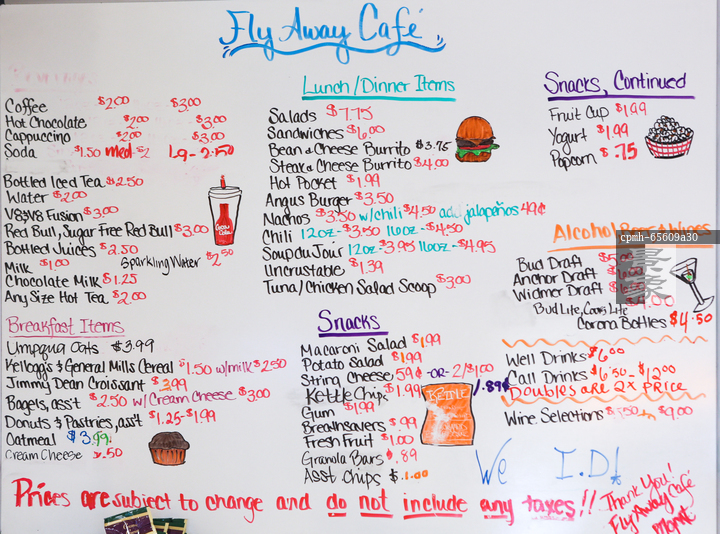 Fly Away Café
Coffee $2.00 $3.00
Hot Chocolate $2.00 $3.00
Cappuccino $2.00 $3.00
Soda $1.50 med-$2 Lg-2.50
Bottled Iced Tea $2.50
Water $2.00
V8 & V8 Fusion $3.00
Red Bull, Sugar Free Red Bull $3.00
Bottled Juices $2.50
Milk $1.00 Sparkling Water $2.50
Chocolate Milk $1.25
Any Size Hot Tea $2.00
Breakfast Items
Umpqua Oats $3.99
Kellogg's & General Mills Cereal $1.50 w/milk $2.50
Jimmy Dean Croissant $3.99
Bagels, ass't $2.50 w/Cream Cheese $3.00
Donuts & Pastries, ass't $1.25-$1.99
Oatmeal $3.99
Cream Cheese .50
Lunch/Dinner Items
Salads $7.75
Sandwiches $6.00
Bean & Cheese Burrito $3.75
Steak & Cheese Burrito $4.00
Hot Pocket $1.99
Angus Burger $3.50
Nachos $3.50 w/chili $4.50 add jalapeños 49¢
Chili 12oz-$3.50 16oz-$4.50
Soup du Jour 12oz-$3.95 16oz-$4.95
Uncrustable $1.39
Tuna/Chicken Salad Scoop $3.00
Snacks
Macaroni Salad $1.99
Potato Salad $1.99
String Cheese 59¢ -OR- 2/$1.00
Kettle Chips $1.99 1.89¢
Gum $1.99
Breathsavers $.99
Fresh Fruit $1.00
Granola Bars $.89
Asst Chips $1.00
KETTLE
Snacks, Continued
Fruit Cup $1.99
Yogurt $1.99
Popcorn $.75
Alcohol
cpmh-65609a30
Bud Draft
Anchor Draft
Widmer Draft
Bud Lite, Coors Lite
Corona Bottles $4.50
Well Drinks $6.00
Call Drinks $6.50-$12.00
Doubles are 2x Price
Wine Selections $9.00
We I.D!
Prices are subject to change and do not include any taxes!!
Thank You!
Fly Away Café
Mgmt